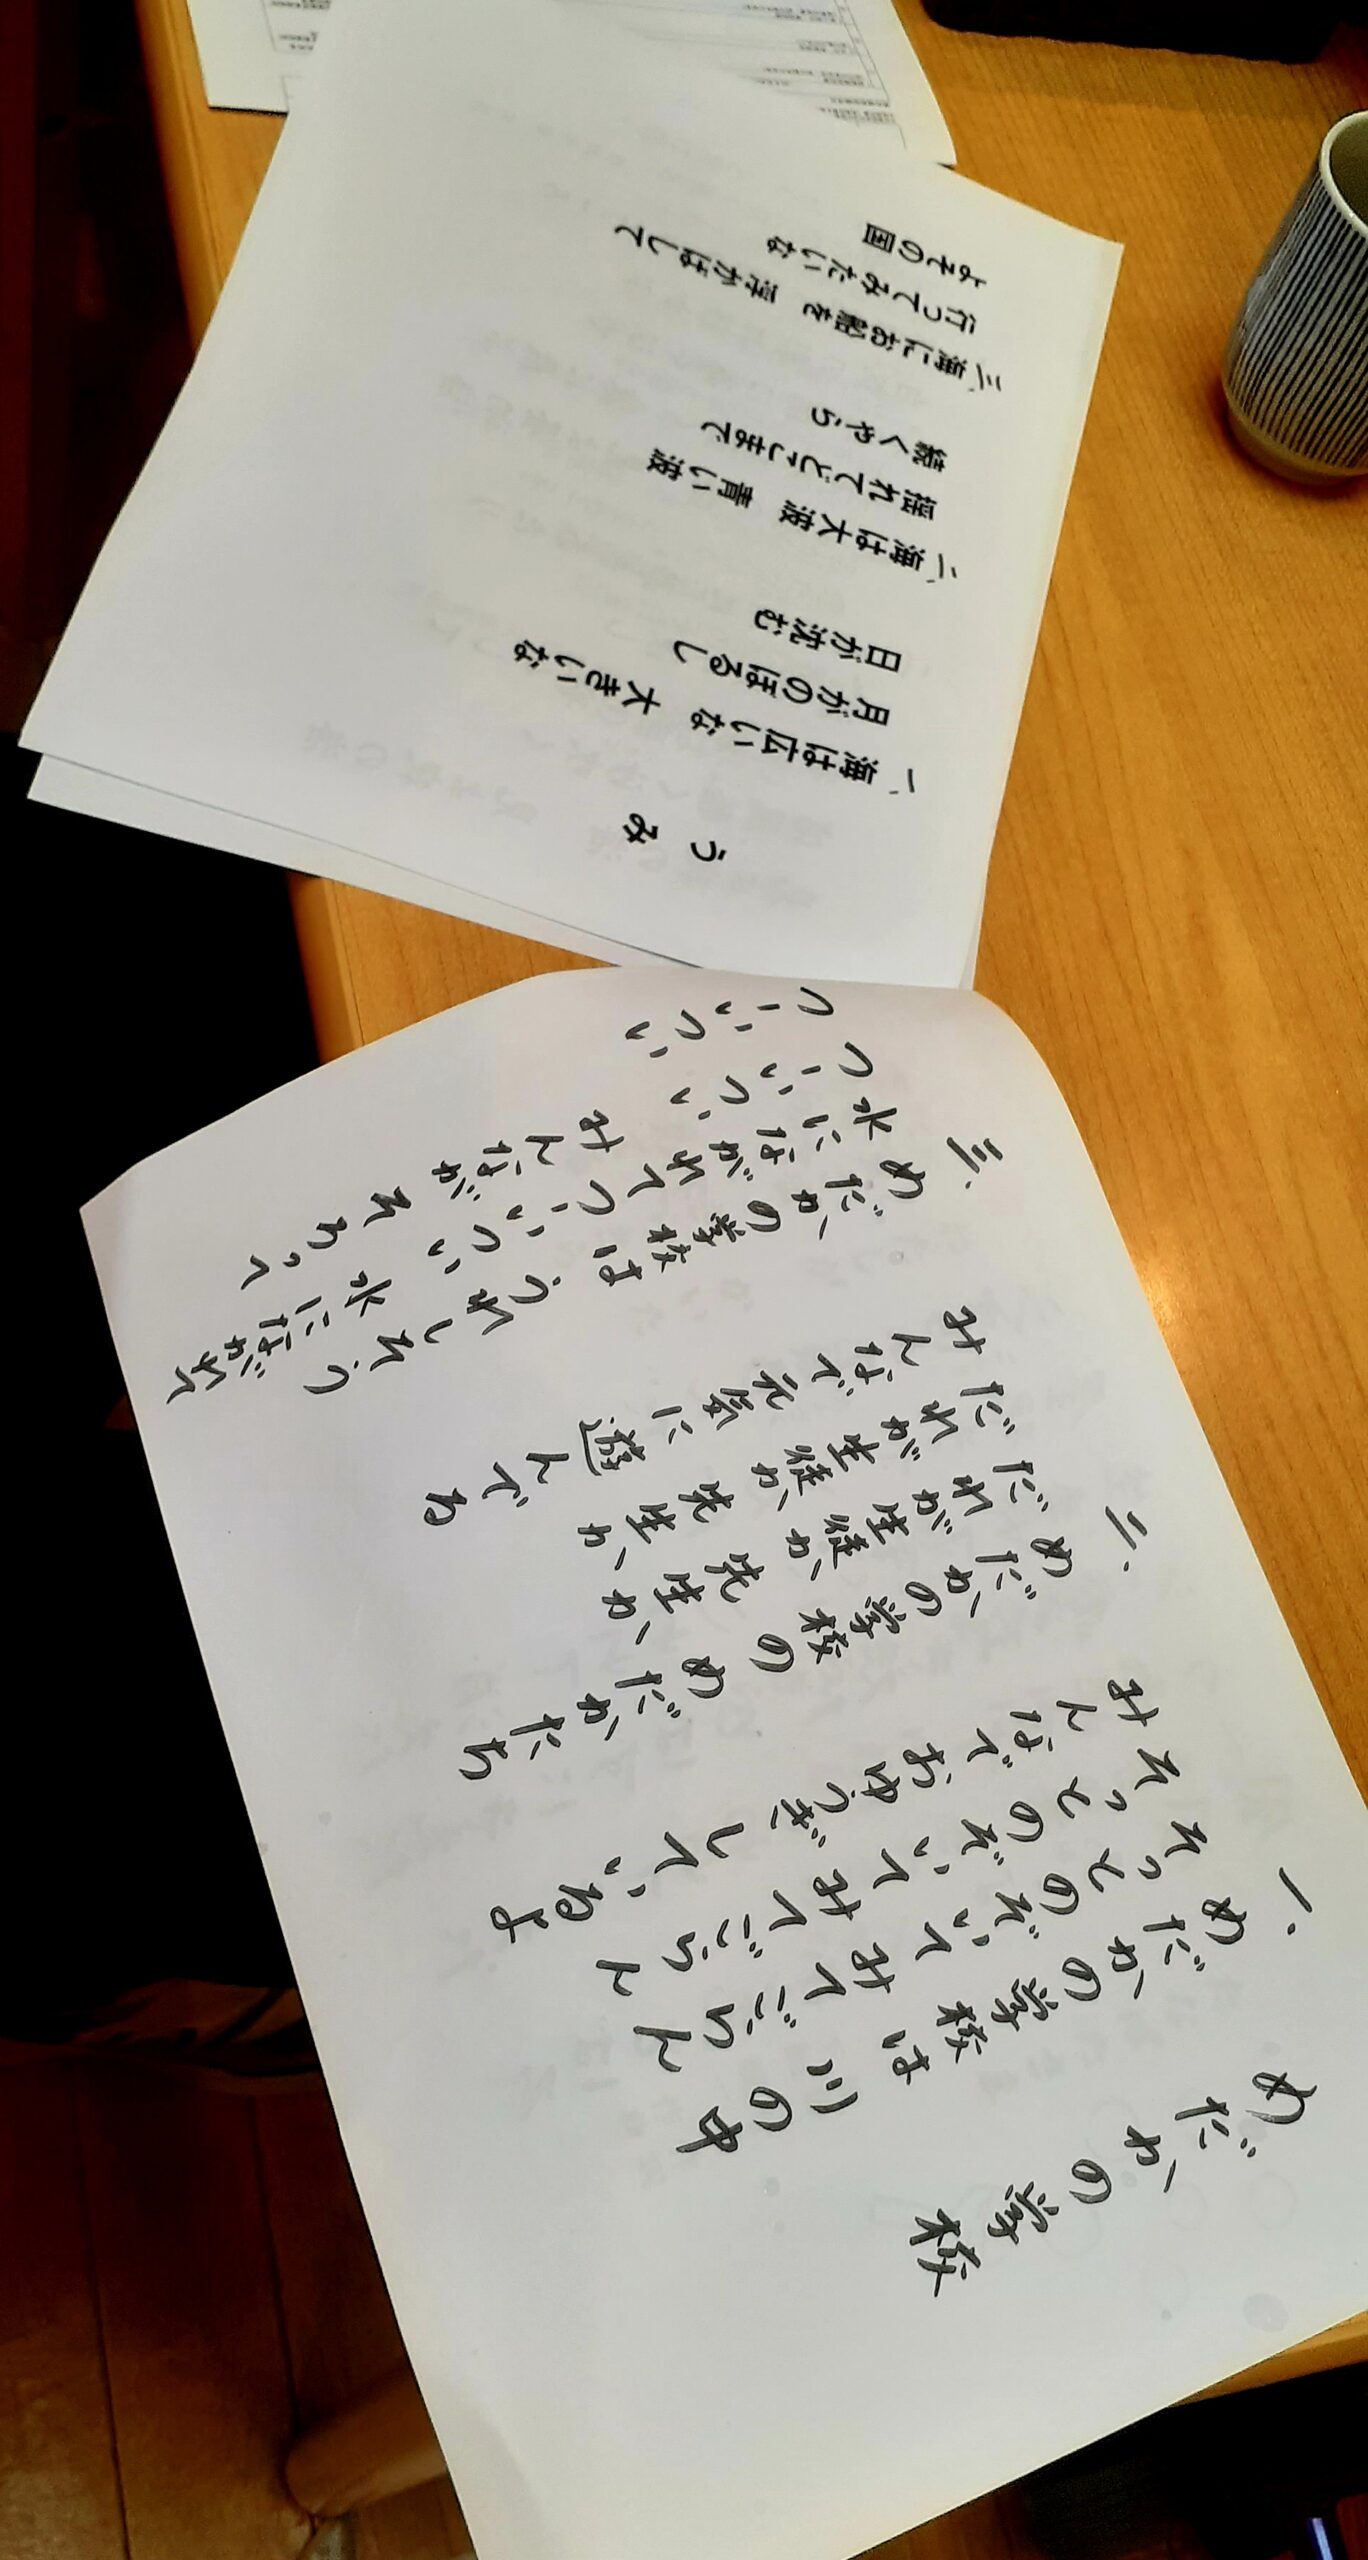 めだかの学校
一、
めだかの学校は 川の中
そっとのぞいて みてごらん
そっとのぞいて みてごらん
みんなで おゆうぎ しているよ
二、
めだかの学校の めだかたち
だれが生徒か 先生か
だれが生徒か 先生か
みんなで 元気に 遊んでる
三、
めだかの学校は うれしそう
水にながれて つーいつい 水にながれて
つーいつい みんなが そろって
つーいつい
うみ
一、海は広いな 大きいな
月がのぼるし
日が沈む
二、海は大波 青い波
揺れてどこまで
続くやら
三、海にお船を 浮かばして
行ってみたいな
よその国